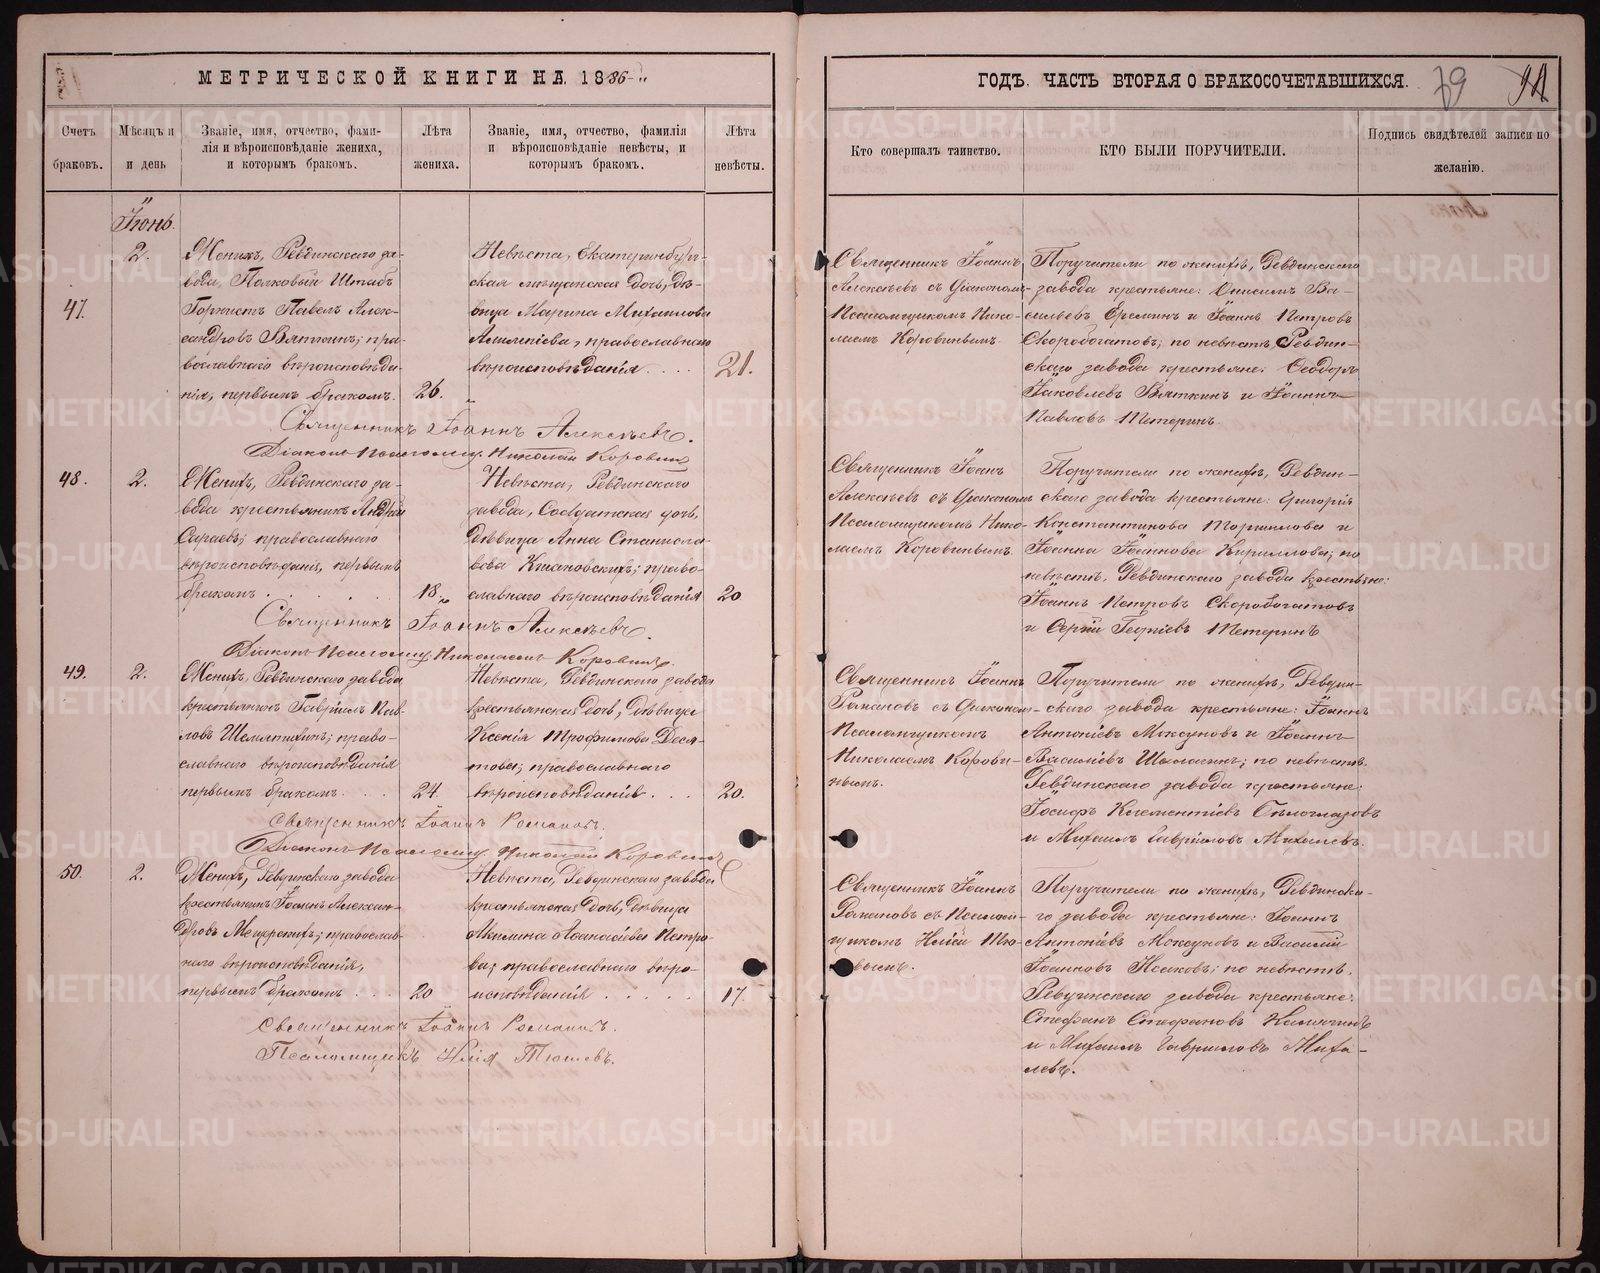 МЕТРИЧЕСКОЙ КНИГИ НА 1886
ГОДЪ. ЧАСТЬ ВТОРАЯ О БРАКОСОЧЕТАВШИХСЯ.
79
Счетъ браковъ.
Мѣсяцъ и и день
Званіе, имя, отчество, фами-
лія и вѣроисповѣданіе жениха,
и которымъ бракомъ.
Лѣта жениха.
Званіе, имя, отчество, фамилія
и вѣроисповѣданіе невѣсты, и
которымъ бракомъ.
Лѣта невѣсты.
Кто совершалъ таинство.
КТО БЫЛИ ПОРУЧИТЕЛИ.
Подпись свидѣтелей записи по
желанію.
Іюнь.
47.
2.
Женихъ, Ревдинскаго за-
вода, Полковый Штабъ
Горнистъ Павелъ Алек-
сандровъ Вяткинъ; пра-
вославнаго вѣроисповѣда-
нія, первымъ бракомъ.
26.
Невѣста, Екатеринбург-
ская мѣщанская дочь, дѣ-
вица Марина Михаилова
православнаго
вѣроисповѣданія
21.
Священникъ Іоаннъ
Алексѣевъ съ Діакономъ-
Псаломщикомъ Нико-
лаемъ Коровинымъ.
Поручители по женихѣ, Ревдинскаго
завода крестьяне: Онисимъ Ва-
сильевъ Ереминъ и Іоаннъ Петровъ
Скоробогатовъ; по невѣстѣ, Ревдин-
скаго завода крестьяне: Ѳеодоръ
Іаковлевъ Вяткинъ и Іоаннъ
Павловъ Темеринъ.
Священникъ Іоаннъ Алексѣевъ.
Діаконъ Псаломщ. Николай Коровинъ
48.
2.
Женихъ, Ревдинскаго за-
вода крестьянинъ Андрей
Сараевъ; православнаго
вѣроисповѣданія, первымъ
бракомъ
18.
Невѣста, Ревдинскаго
завода, Солдатская дочь,
дѣвица Анна Станисла-
вова право-
славнаго вѣроисповѣданія
20
Священникъ Іоаннъ
Алексѣевъ съ Діакономъ
Псаломщикомъ Нико-
лаемъ Коровинымъ.
Поручители по женихѣ, Ревдин-
скаго завода крестьяне: Григорій
Константинова и
Іоанна Іоаннова Кириллова; по
невѣстѣ. Ревдинскаго завода крестьяне:
Іоаннъ Петровъ Скоробогатовъ
и Сергій Георгіевъ Темеринъ
Священникъ Іоаннъ Алексѣевъ.
Діаконъ Псаломщ. Николай Коровинъ.
49.
2.
Женихъ, Ревдинскаго завода
крестьянинъ Гавріилъ Пав-
ловъ право-
славнаго вѣроисповѣданія
первымъ бракомъ.
24
Невѣста, Ревдинскаго завода
крестьянская дочь, дѣвица
Ксенія Трофимова Деся-
това; православнаго
вѣроисповѣданія
20.
Священникъ Іоаннъ
Романовъ съ Діакономъ-
Псаломщикомъ
Николаемъ Корови-
нымъ.
Поручители по женихѣ, Ревдин-
скаго завода крестьяне: Іоаннъ
Антоніевъ Моксуновъ и Іоаннъ
Василіевъ по невѣстѣ.
Ревдинскаго завода крестьяне:
Іосифъ Климентіевъ Бѣлоглазовъ
и Михаилъ Гавріиловъ Михалевъ.
Священникъ Іоаннъ Романовъ.
Діаконъ Псаломщ. Николай Коровинъ
50.
2.
Женихъ, Ревдинскаго завода
крестьянинъ Іоаннъ Алексан-
дровъ Мещерскихъ; православ-
наго вѣроисповѣданія,
первымъ бракомъ
20
Невѣста, Ревдинскаго завода
крестьянская дочь, дѣвица
Акилина Аѳанасіева Петро-
ва; православнаго вѣро-
исповѣданія
17.
Священникъ Іоаннъ
Романовъ съ Псалом-
щикомъ Иліей Тю-
Поручители по женихѣ, Ревдинска-
го завода крестьяне: Іоаннъ
Антоніевъ Моксуновъ и Василій
Іоанновъ Исаковъ; по невѣстѣ.
Ревдинскаго завода крестьяне:
Стефанъ Стефановъ
и Михаилъ Гавріиловъ Миха-
левъ.
Священникъ Іоаннъ Романовъ.
Псаломщикъ Илія
METRIKI.GASO-URAL.RU